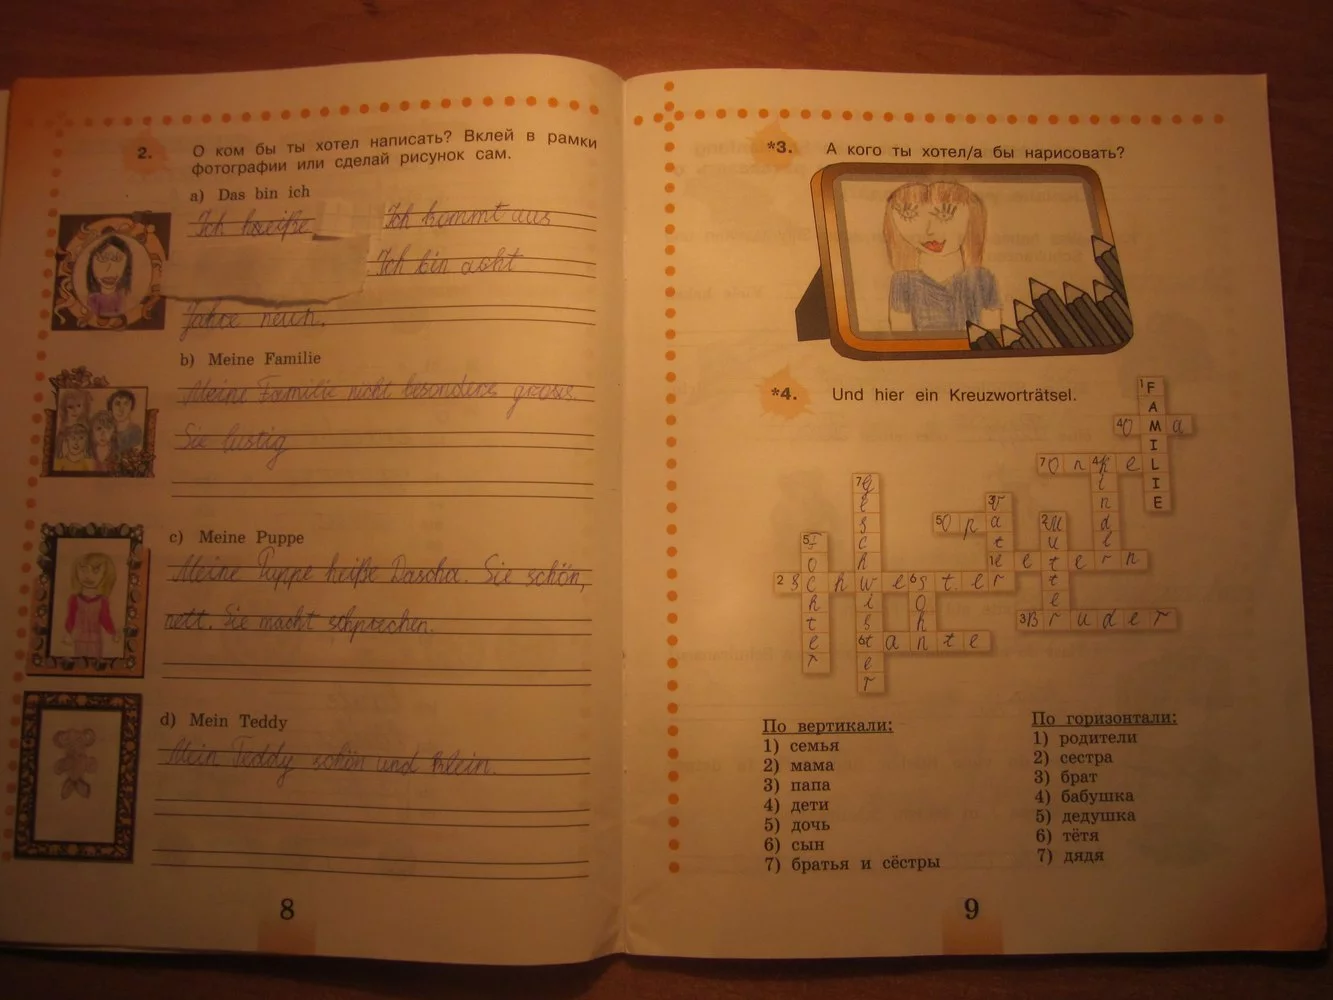 2. О ком бы ты хотел написать? Вклей в рамки
фотографии или сделай рисунок сам.
a) Das bin ich
Ich heiße Ich kommt aus
Ich bin acht
Jahre neun.
b) Meine Familie
Meine Familie nicht besonders gross.
Sie lustig
c) Meine Puppe
Meine Puppe heiße Dascha. Sie schön,
nett. Sie macht
d) Mein Teddy
Mein Teddy schön und klein.
8
*3. А кого ты хотел/а бы нарисовать?
*4. Und hier ein Kreuzworträtsel.
1 FAMILIE
4 Oma
7 Onkel
4 Kinder
7 Geschwister
3 Vater
5 Opa
2 Mutter
5 Tochter
1 eltern
2 Schwester
6 Sohn
3 Bruder
6 tante
По вертикали:
1) семья
2) мама
3) папа
4) дети
5) дочь
6) сын
7) братья и сёстры
По горизонтали:
1) родители
2) сестра
3) брат
4) бабушка
5) дедушка
6) тётя
7) дядя
9